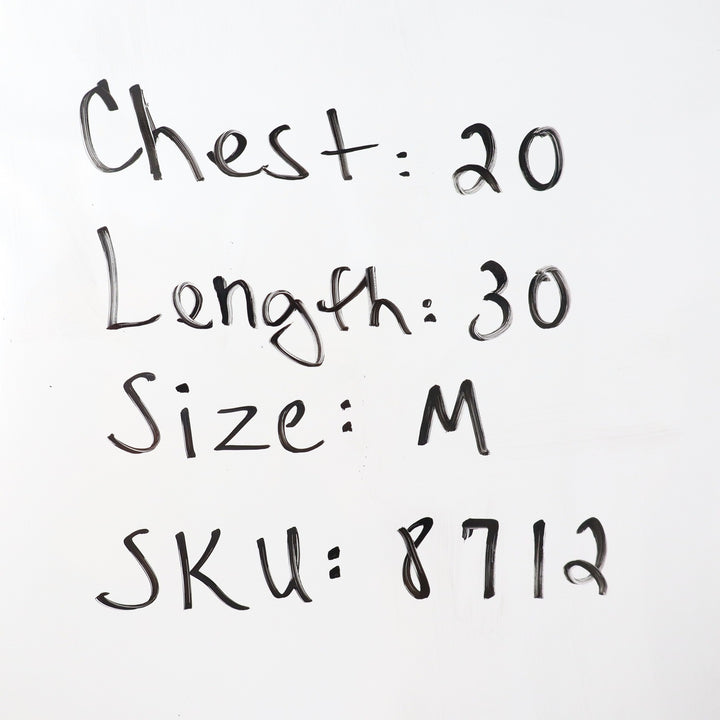 Chest: 20
Length: 30
Size: M
SKU: 8712